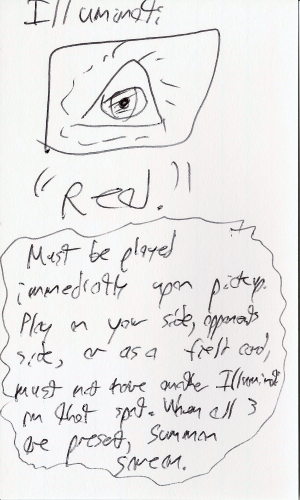 Illuminati
"Red."
Must be played
immediatly upon pickup.
Play on your side, opponents
side, or as a field card,
must not have another Illuminati
on that spot. When all 3
are present, summon